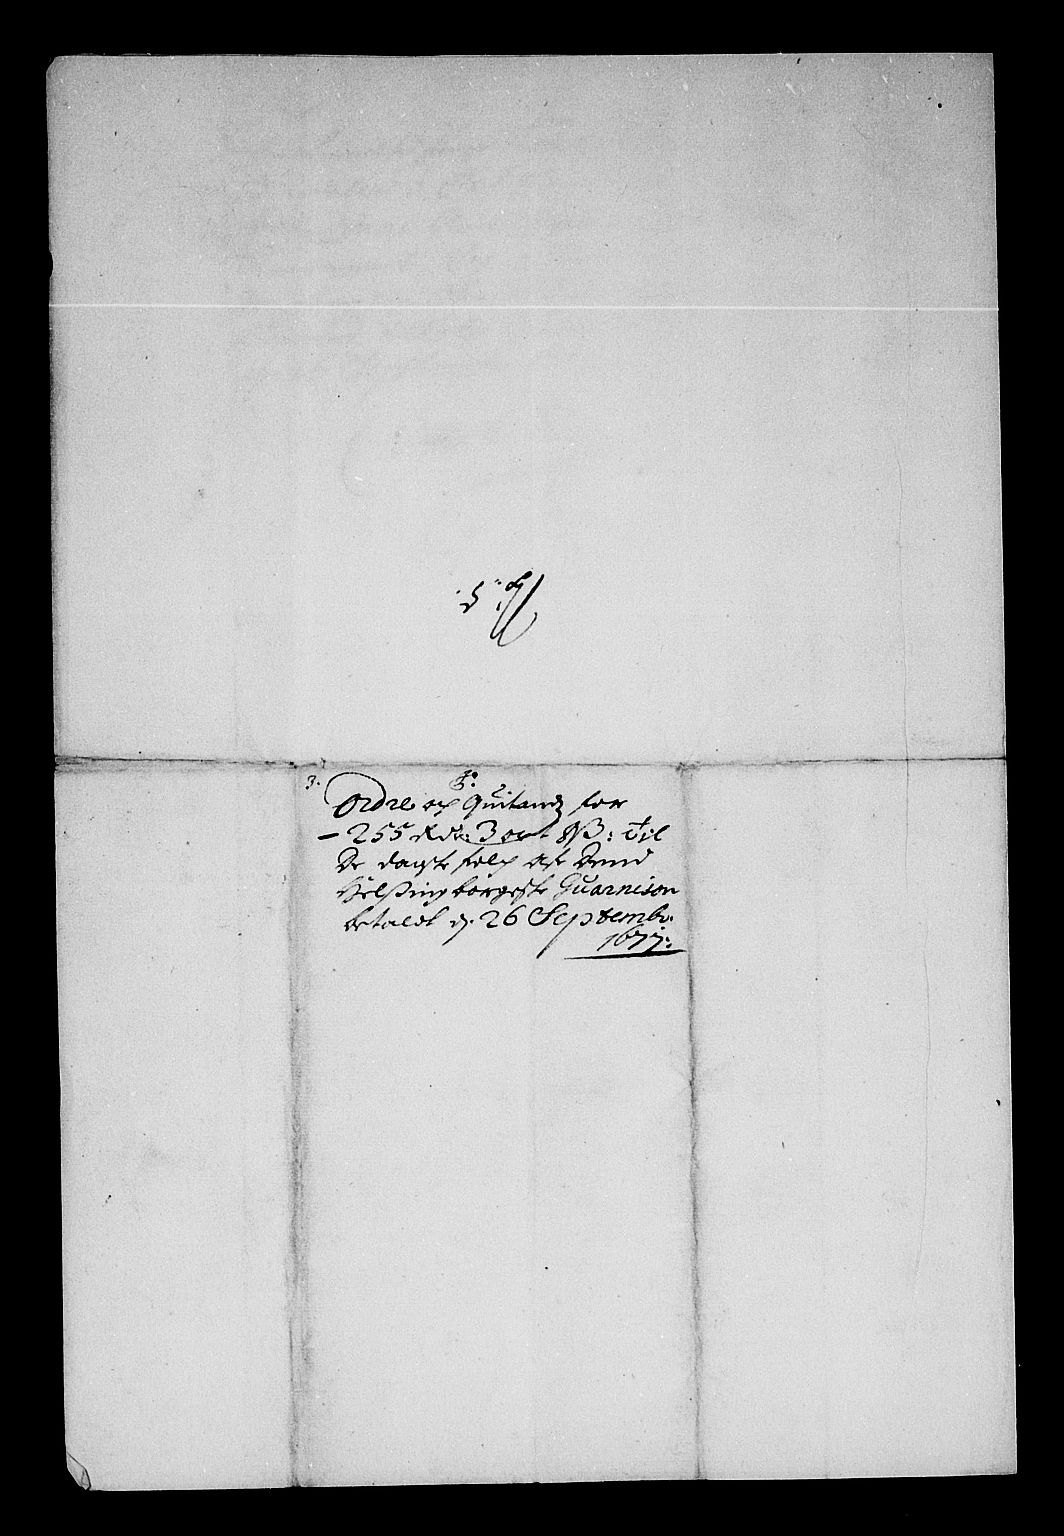 3.
Ordre og Quitandz for
255 Rdr: 3 ort 8 ß: Til
De dagste folch aff Dend
Helsingborgeske Guarnison
betaldt d. 26 Septembr:
1677: